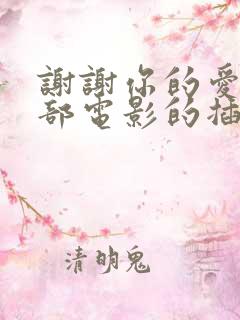 謝謝你的愛
部電影的插
清明鬼